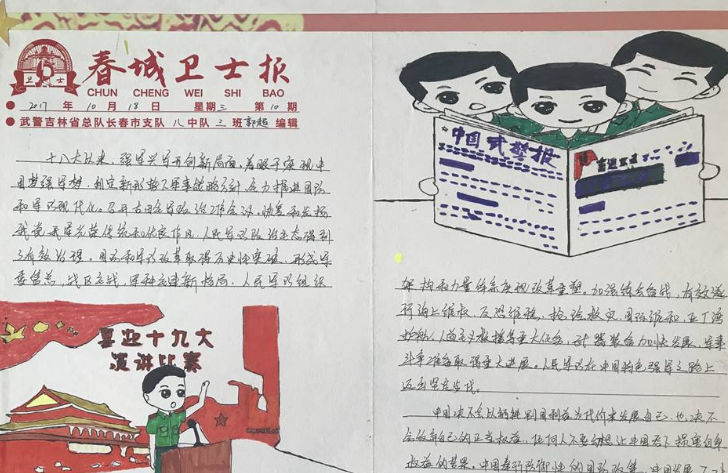 春城卫士报
CHUN CHENG WEI SHI BAO
卫 士
2017 年 10 月 18 日 星期三 第 10 期
武警吉林省总队长春市支队 八中队 三 班 郭超 编辑
十八大以来，强军兴军开创新局面，着眼于实现中
国梦强军梦，制定新形势下军事战略方针，全力推进国防
和军队现代化。召开古田全军政治工作会议，恢复和发扬
我党我军光荣传统和优良作风，人民军队政治生态得到
了有效治理。国防和军队改革取得历史性突破，形成军
委管总、战区主战、军种主建新格局，人民军队组织
喜迎十九大
演讲比赛
中国武警报
架构和力量体系实现革命性重塑。加强练兵备战，有效遂
行海上维权、反恐维稳、抢险救灾、国际维和、亚丁湾
护航、人道主义救援等重大任务，武器装备加快发展，军事
斗争准备取得重大进展。人民军队在中国特色强军之路上
迈出坚定步伐。
中国决不会以牺牲别国利益为代价来发展自己，也决不
会放弃自己的正当权益，任何人不要幻想让中国吞下损害自身
权益的苦果。中国奉行防御性的国防政策。中国发展